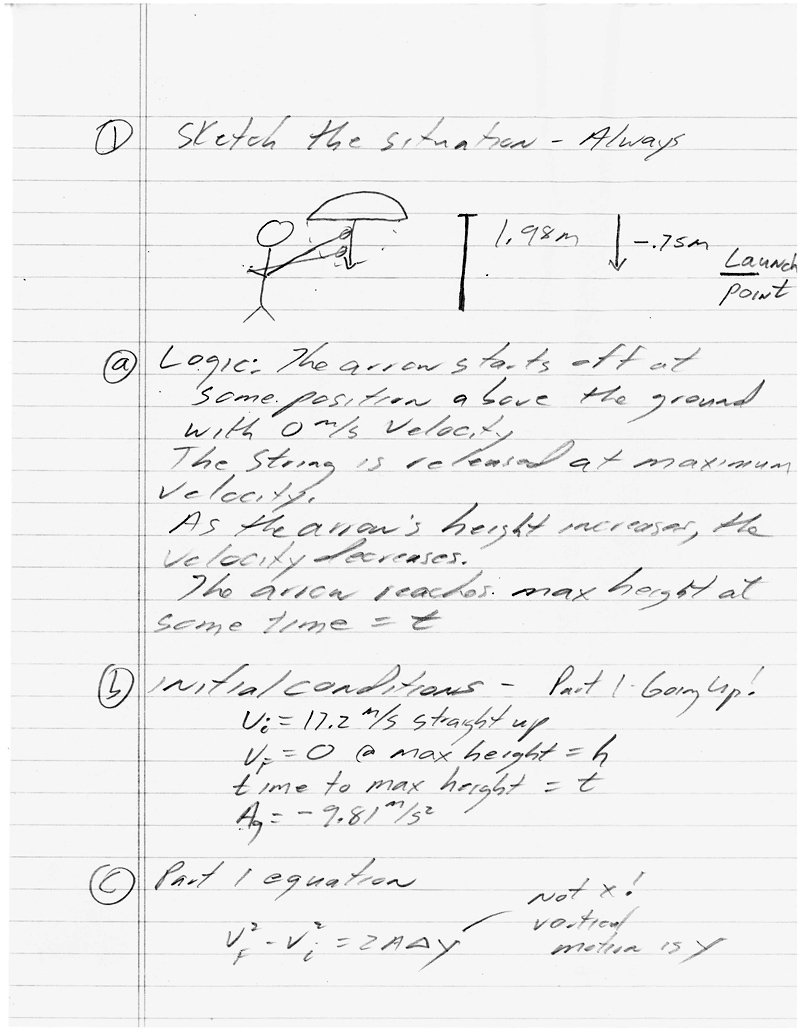 ① Sketch the situation - Always
1.98m
-.75m
Launch
Point
ⓐ Logic: The arrow starts off at
some position above the ground
with 0 m/s velocity
The string is released at maximum
velocity.
As the arrow's height increases, the
velocity decreases.
The arrow reaches max height at
some time = t
ⓑ initial conditions - Part 1 - Going Up!
Vi = 17.2 m/s straight up
VF = 0 @ max height = h
time to max height = t
Ag = -9.81 m/s²
ⓒ Part 1 equation
Not x!
vertical
motion is y
VF² - Vi² = 2AΔy